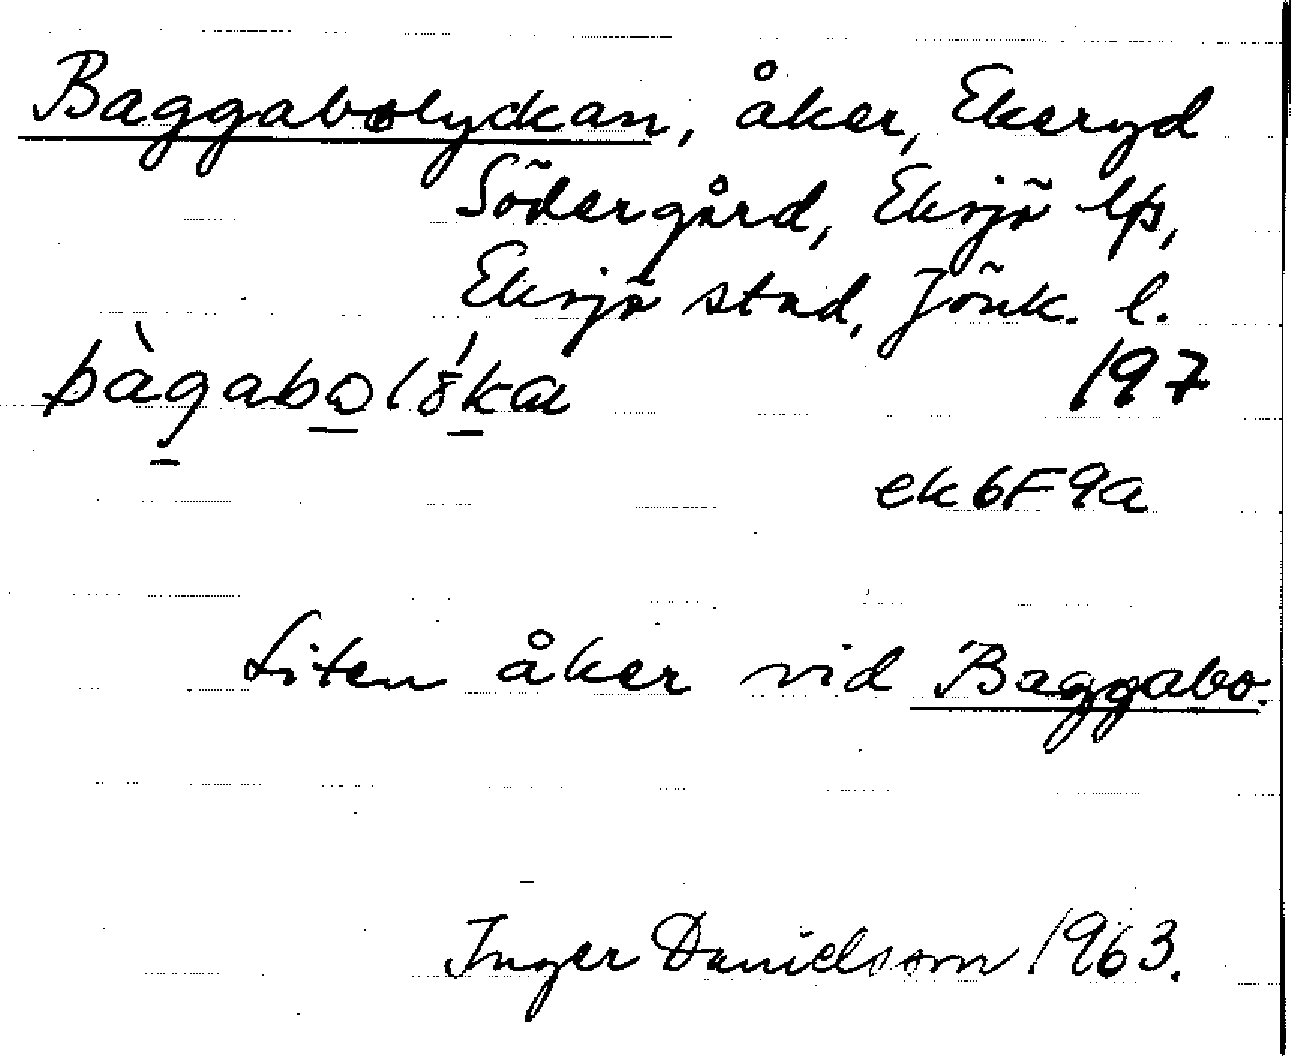 Baggabolyckan, åker, Ekeryd
Södergård, Eksjö lfs,
Eksjö stad, Jönk. l.
197
ek6F9a
Liten åker vid Baggabo.
Inger Danielsson 1963.